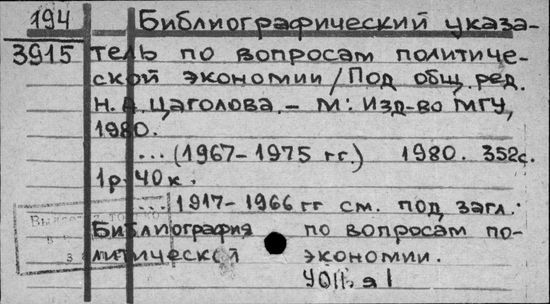 194 Библиографический указа-
3915 тель по вопросам политиче-
ской экономии / Под общ. ред.
Н. А. Цаголова. – М.: Изд-во МГУ,
1980.
... (1967–1975 гг.) 1980. 352с.
1р 40к.
... 1917–1966 гг см. под загл.:
Библиография по вопросам по-
литической экономии.